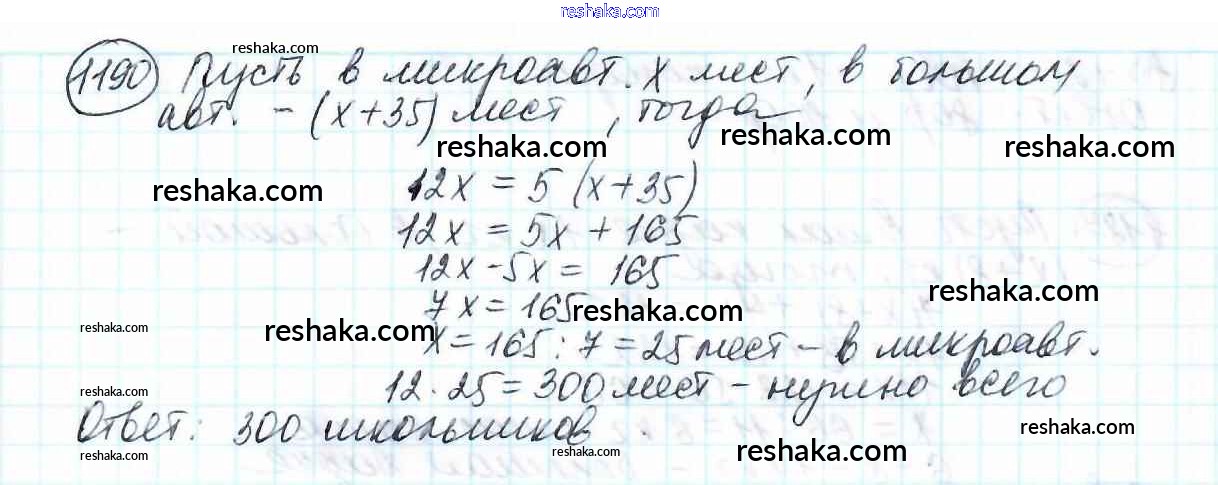 reshaka.com
reshaka.com
1190 Пусть в микроавт. x мест, в большом
авт. - (x+35) мест, тогда
reshaka.com
reshaka.com
reshaka.com
reshaka.com
12x = 5 (x+35)
12x = 5x + 165
12x-5x = 165
reshaka.com
7x = 165
reshaka.com
reshaka.com
reshaka.com
x = 165 : 7 = 25 мест - в микроавт.
12 · 25 = 300 мест - нужно всего
reshaka.com
Ответ: 300 школьников.
reshaka.com
reshaka.com
reshaka.com
reshaka.com